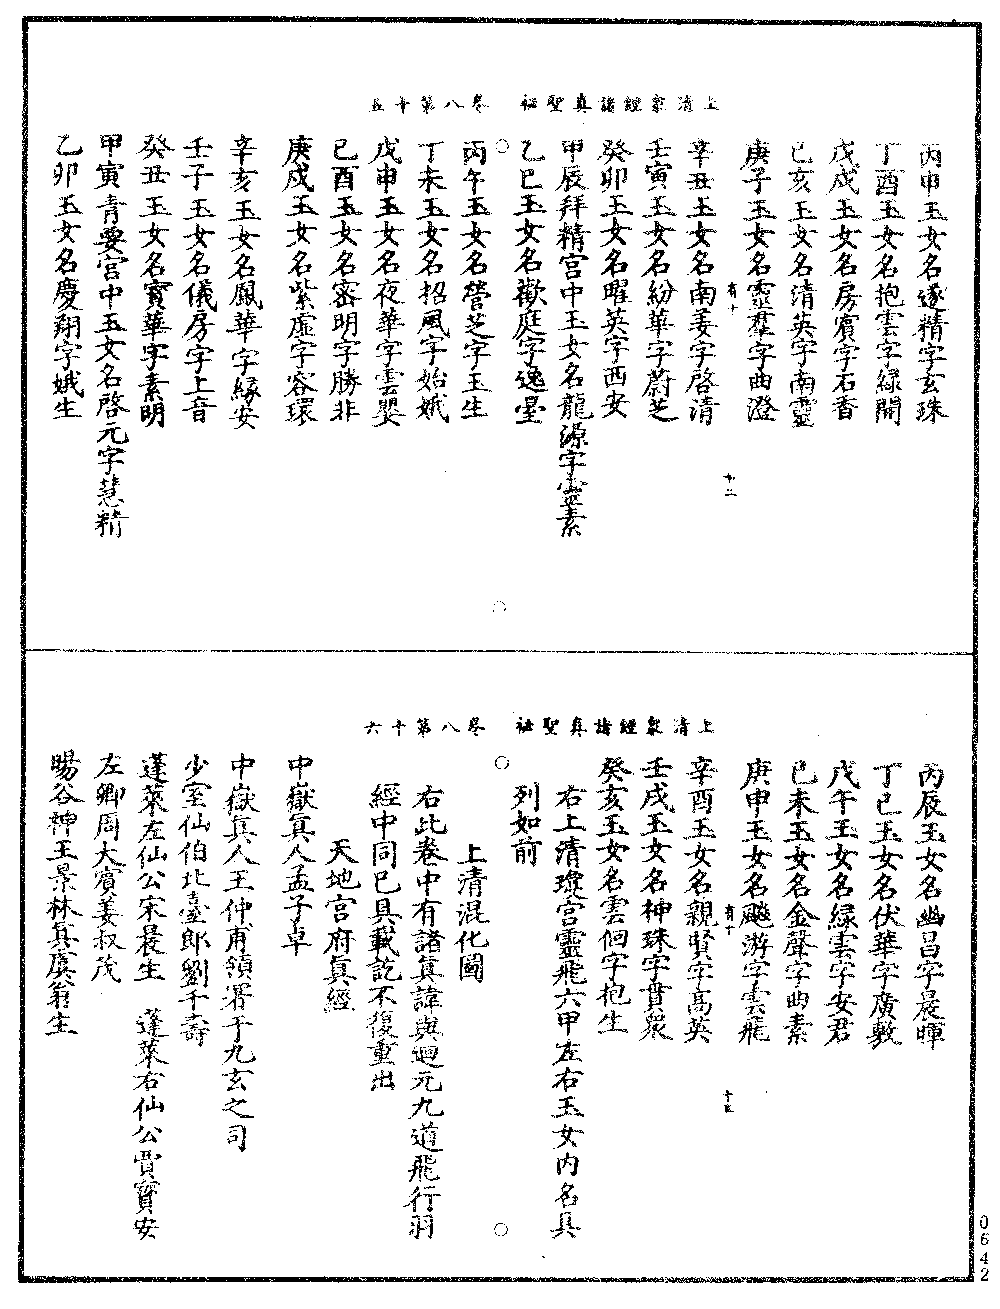 上清衆經諸真聖祕　卷八第十五
丙申玉女名遂精字玄珠
丁酉玉女名抱雲字綠開
戊戌玉女名房賓字石香
己亥玉女名清英字南靈
庚子玉女名靈羣字曲澄
有十
十二
辛丑玉女名南姜字啓清
壬寅玉女名紛華字蔚芝
癸卯玉女名曜英字西安
甲辰拜精宮中玉女名龍源字靈素
乙巳玉女名歡庭字逸臺
丙午玉女名營芝字玉生
丁未玉女名招風字始娥
戊申玉女名夜華字雲嬰
己酉玉女名密明字勝非
庚戌玉女名紫虛字容環
辛亥玉女名鳳華字緣安
壬子玉女名儀房字上音
癸丑玉女名寶華字素明
甲寅青要宮中玉女名啓元字慧精
乙卯玉女名慶翔字娥生
上清衆經諸真聖祕　卷八第十六
丙辰玉女名幽昌字晨暉
丁巳玉女名伏華字廣敷
戊午玉女名綠雲字安君
己未玉女名金聲字曲素
庚申玉女名飈游字雲飛
有十
辛酉玉女名親賢字高英
壬戌玉女名神珠字賫衆
癸亥玉女名雲佪字抱生
右上清瓊宮靈飛六甲左右玉女內名具
列如前
上清混化圖
右此卷中有諸真諱與迴元九道飛行羽
經中同已具載訖不復重出
天地宮府真經
中嶽真人孟子卓
中嶽真人王仲甫領署于九玄之司
少室仙伯北臺郎劉千壽
蓬萊左仙公宋晨生　蓬萊右仙公賈寶安
左卿周大賓姜叔茂
暘谷神王景林真虞翁生
0642